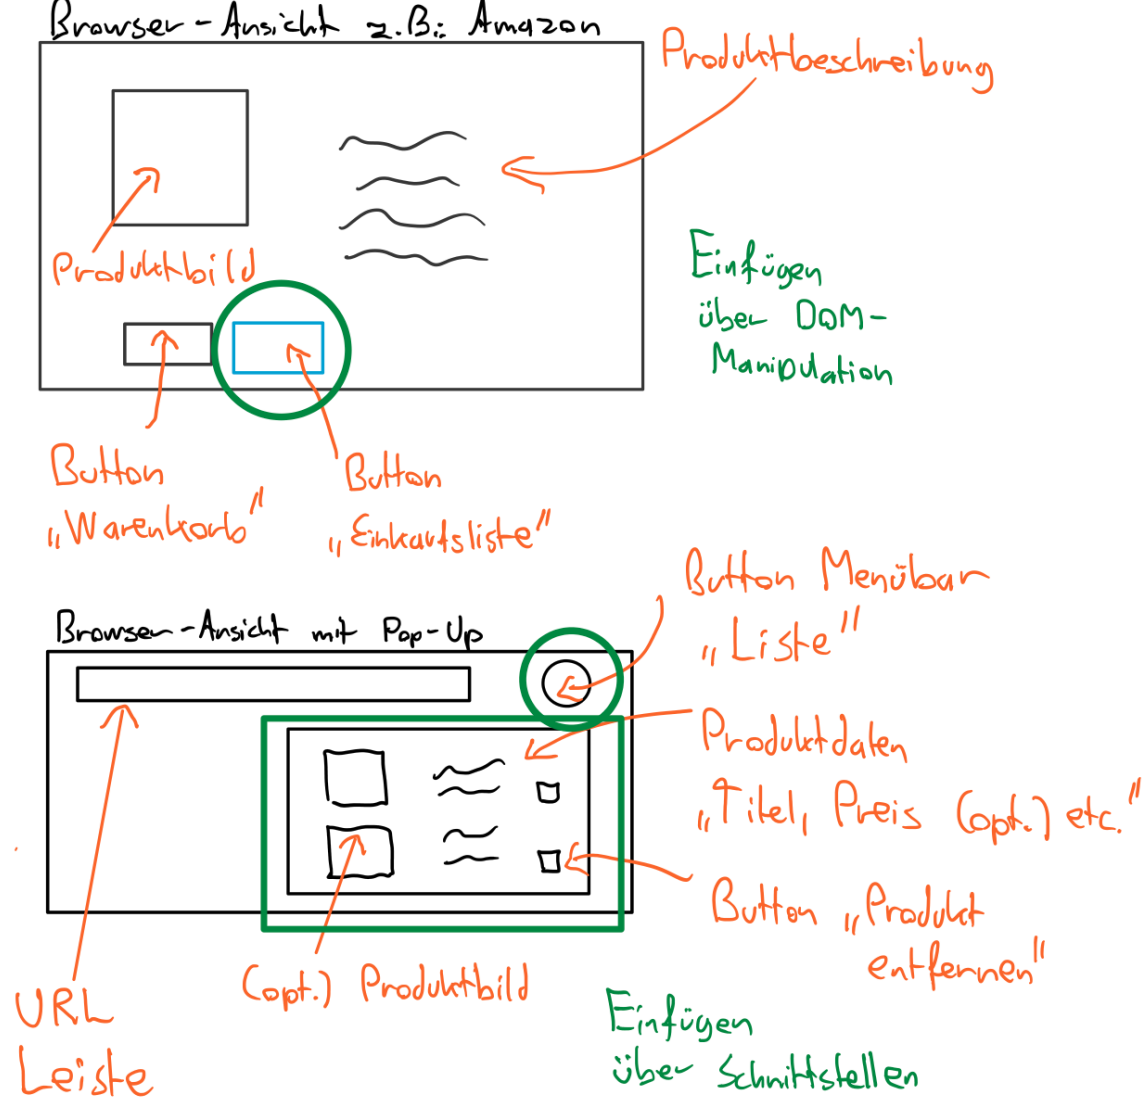 Browser-Ansicht z.B.: Amazon
Produktbeschreibung
Produktbild
Einfügen
über DOM-
Manipulation
Button
„Warenkorb"
Button
„Einkaufsliste"
Button Menübar
„Liste"
Browser-Ansicht mit Pop-Up
Produktdaten
„Titel, Preis (opt.) etc."
Button „Produkt
entfernen"
(opt.) Produktbild
URL
Leiste
Einfügen
über Schnittstellen